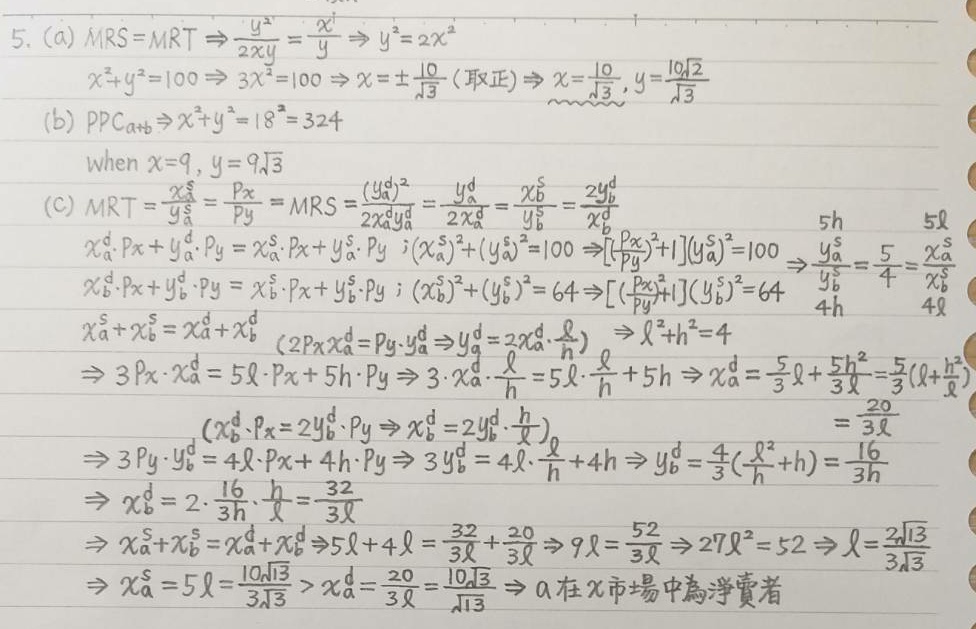 5. (a) MRS = MRT ⇒ y²/2xy = x/y ⇒ y² = 2x²
x²+y²=100 ⇒ 3x²=100 ⇒ x=± 10/√3 (取正) ⇒ x=10/√3, y=10√2/√3
(b) PPCa+b ⇒ x²+y²=18²=324
when x=9, y=9√3
(c) MRT = xₐˢ/yₐˢ = Px/Py = MRS = (yₐᵈ)²/2xₐᵈyₐᵈ = yₐᵈ/2xₐᵈ = x_bˢ/y_bˢ = 2y_bᵈ/x_bᵈ
xₐᵈ·Px + yₐᵈ·Py = xₐˢ·Px + yₐˢ·Py ; (xₐˢ)²+(yₐˢ)²=100 ⇒ [(Px/Py)²+1](yₐˢ)²=100
x_bᵈ·Px + y_bᵈ·Py = x_bˢ·Px + y_bˢ·Py ; (x_bˢ)²+(y_bˢ)²=64 ⇒ [(Px/Py)²+1](y_bˢ)²=64
⇒ 5h yₐˢ/y_bˢ 4h = 5/4 = 5ℓ xₐˢ/x_bˢ 4ℓ
xₐˢ + x_bˢ = xₐᵈ + x_bᵈ (2Px xₐᵈ = Py·yₐᵈ ⇒ yₐᵈ = 2xₐᵈ·ℓ/h) ⇒ ℓ²+h²=4
⇒ 3Px·xₐᵈ = 5ℓ·Px + 5h·Py ⇒ 3·xₐᵈ·ℓ/h = 5ℓ·ℓ/h + 5h ⇒ xₐᵈ = 5/3ℓ + 5h²/3ℓ = 5/3(ℓ+h²/ℓ)
= 20/3ℓ
(x_bᵈ·Px = 2y_bᵈ·Py ⇒ x_bᵈ = 2y_bᵈ·h/ℓ)
⇒ 3Py·y_bᵈ = 4ℓ·Px + 4h·Py ⇒ 3y_bᵈ = 4ℓ·ℓ/h + 4h ⇒ y_bᵈ = 4/3(ℓ²/h + h) = 16/3h
⇒ x_bᵈ = 2·16/3h·h/ℓ = 32/3ℓ
⇒ xₐˢ + x_bˢ = xₐᵈ + x_bᵈ ⇒ 5ℓ+4ℓ = 32/3ℓ + 20/3ℓ ⇒ 9ℓ = 52/3ℓ ⇒ 27ℓ²=52 ⇒ ℓ = 2√13/3√3
⇒ xₐˢ = 5ℓ = 10√13/3√3 > xₐᵈ = 20/3ℓ = 10√3/√13 ⇒ a在x市場中為淨賣者